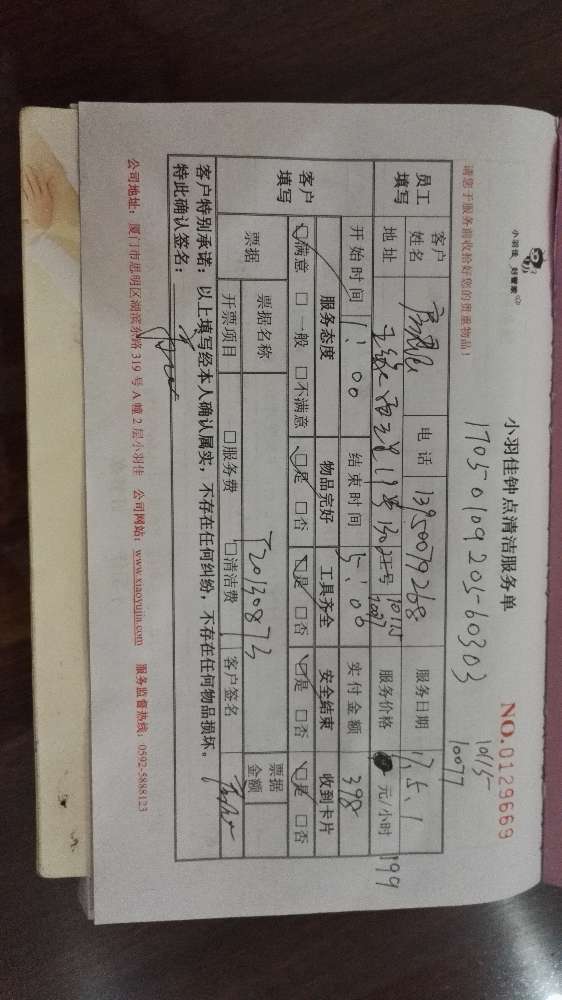 小羽佳 好管家
小羽佳钟点清洁服务单
NO.0129669
17050109205-60303
10115
10077
请您于服务前收拾好您的贵重物品！
员工填写
客户姓名
电话 13950079268
服务日期 17.5.1
地址
工号 10115
10077
服务价格 元/小时 199
开始时间 1:00
结束时间 5:00
实付金额 398
客户填写
服务态度 物品完好 工具齐全 安全结束 收到卡片
☑满意 □一般 □不满意 ☑是 □否 ☑是 □否 ☑是 □否 ☑是 □否
票据
票据名称 T20130873
票据金额
开票项目 □服务费 □清洁费 客户签名
客户特别承诺：以上填写经本人确认属实，不存在任何纠纷，不存在任何物品损坏。
特此确认签名：
公司地址：厦门市思明区湖滨东路 319 号 A 幢 2 层小羽佳 公司网站：www.xiaoyujia.com 服务监督热线：0592-5888123